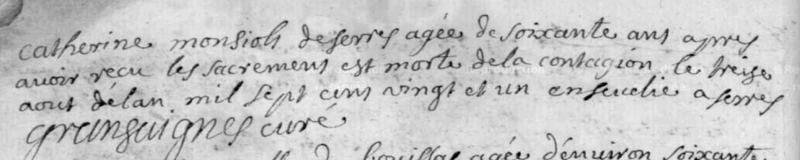 catherine monsiols deserres agée de soixante ans apres
avoir recu les sacremens est morte dela contagion le treise
aout délan mil sept cens vingt et un enseuelie a serres
gransaignes curé
agée denuiron soixante